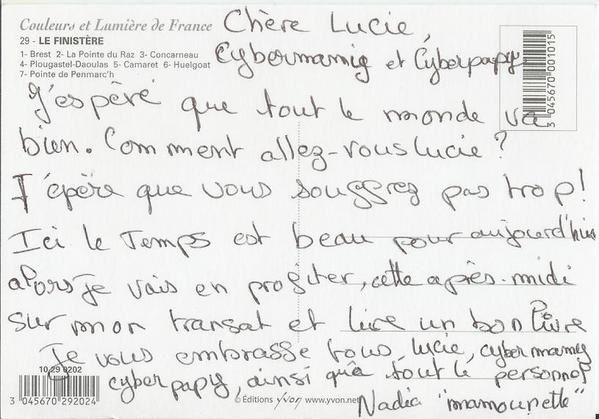 Couleurs et Lumière de France
29 - LE FINISTÈRE
1- Brest 2- La Pointe du Raz 3- Concarneau
4- Plougastel-Daoulas 5- Camaret 6- Huelgoat
7- Pointe de Penmarc'h
Chère Lucie,
Cybermamig et Cyberpapy
J'espéré que tout le monde va
bien. Comment allez-vous lucie ?
J'épère que vous souffrez pas trop !
Ici le Temps est beau pour aujourd'hui
alors je vais en profiter, cette après-midi
sur mon transat et lire un bon livre
Je vous embrasse tous, lucie, cybermamig
cyberpapy, ainsi que tout le personnel
Nadia "mamounette"
10 29 0202
3 045670 292024
© Editions Yvon www.yvon.net
3 045670 001015